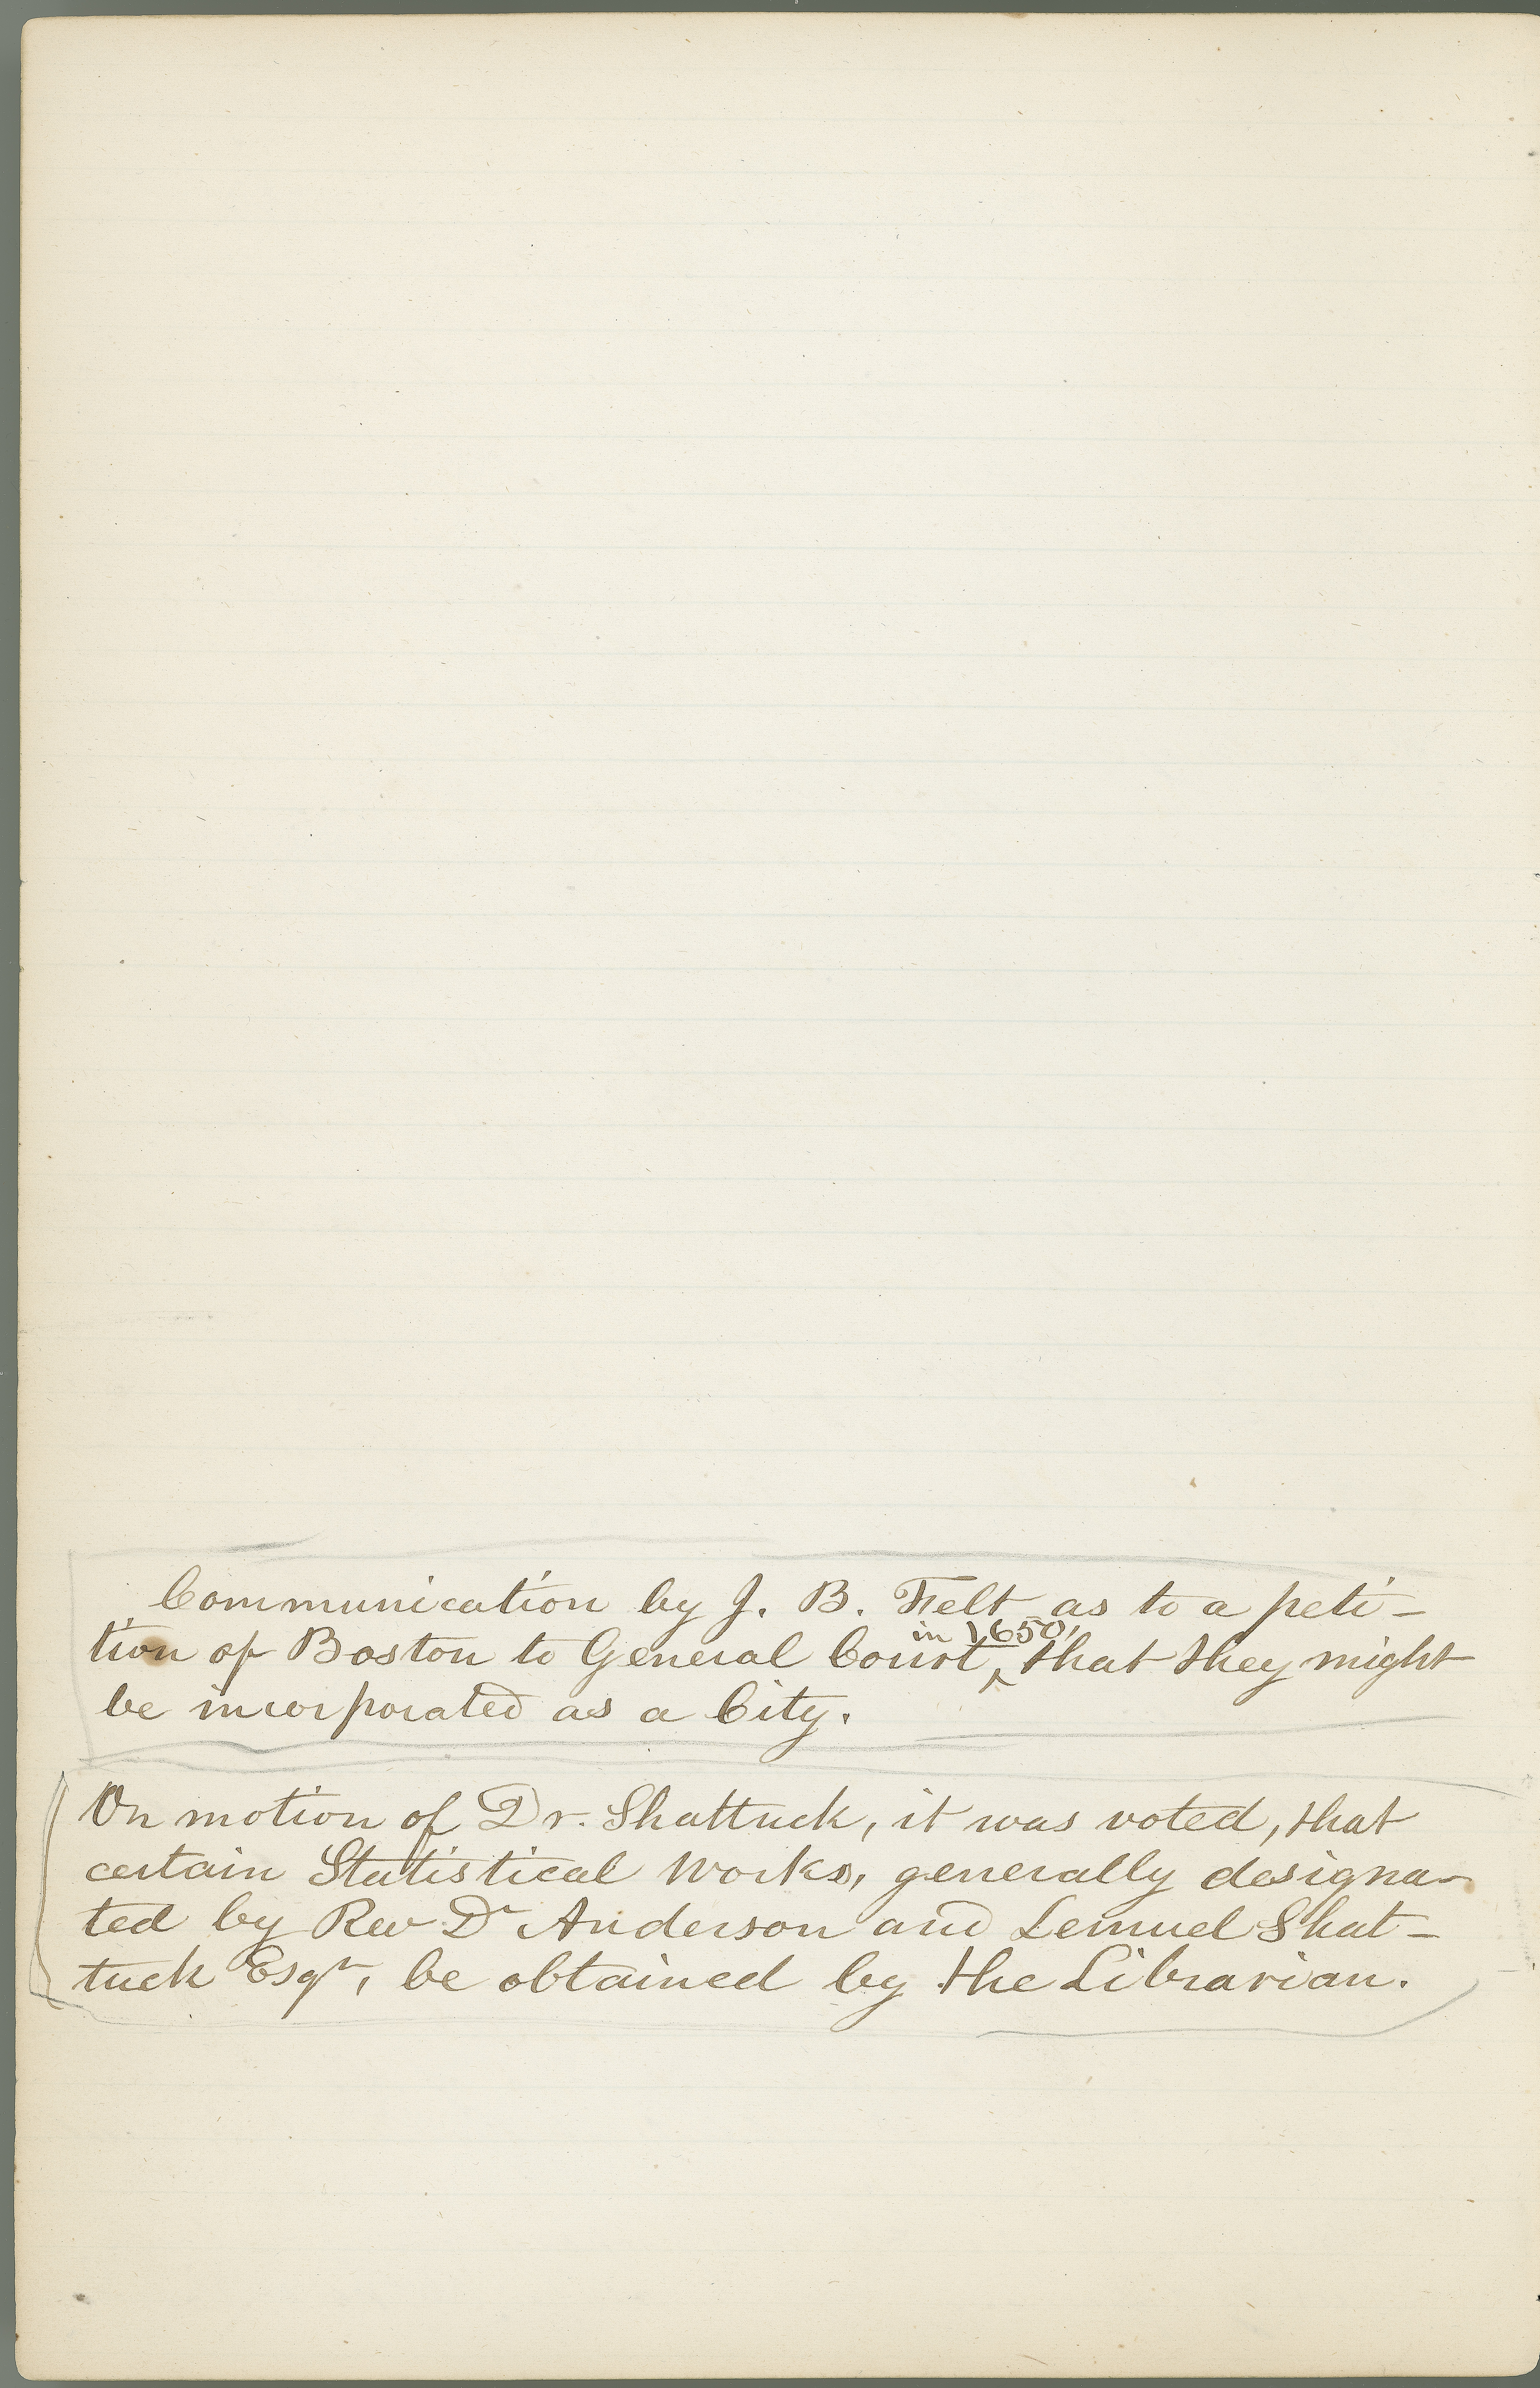 Communication by J. B. Felt as to a peti-
in 1650,
tion of Boston to General Court ‸ that they might
be incorporated as a City.
On motion of Dr. Shattuck, it was voted, that
certain Statistical works, generally designa-
ted by Rev Dr Anderson and Lemuel Shat-
tuck Esqr, be obtained by the Librarian.